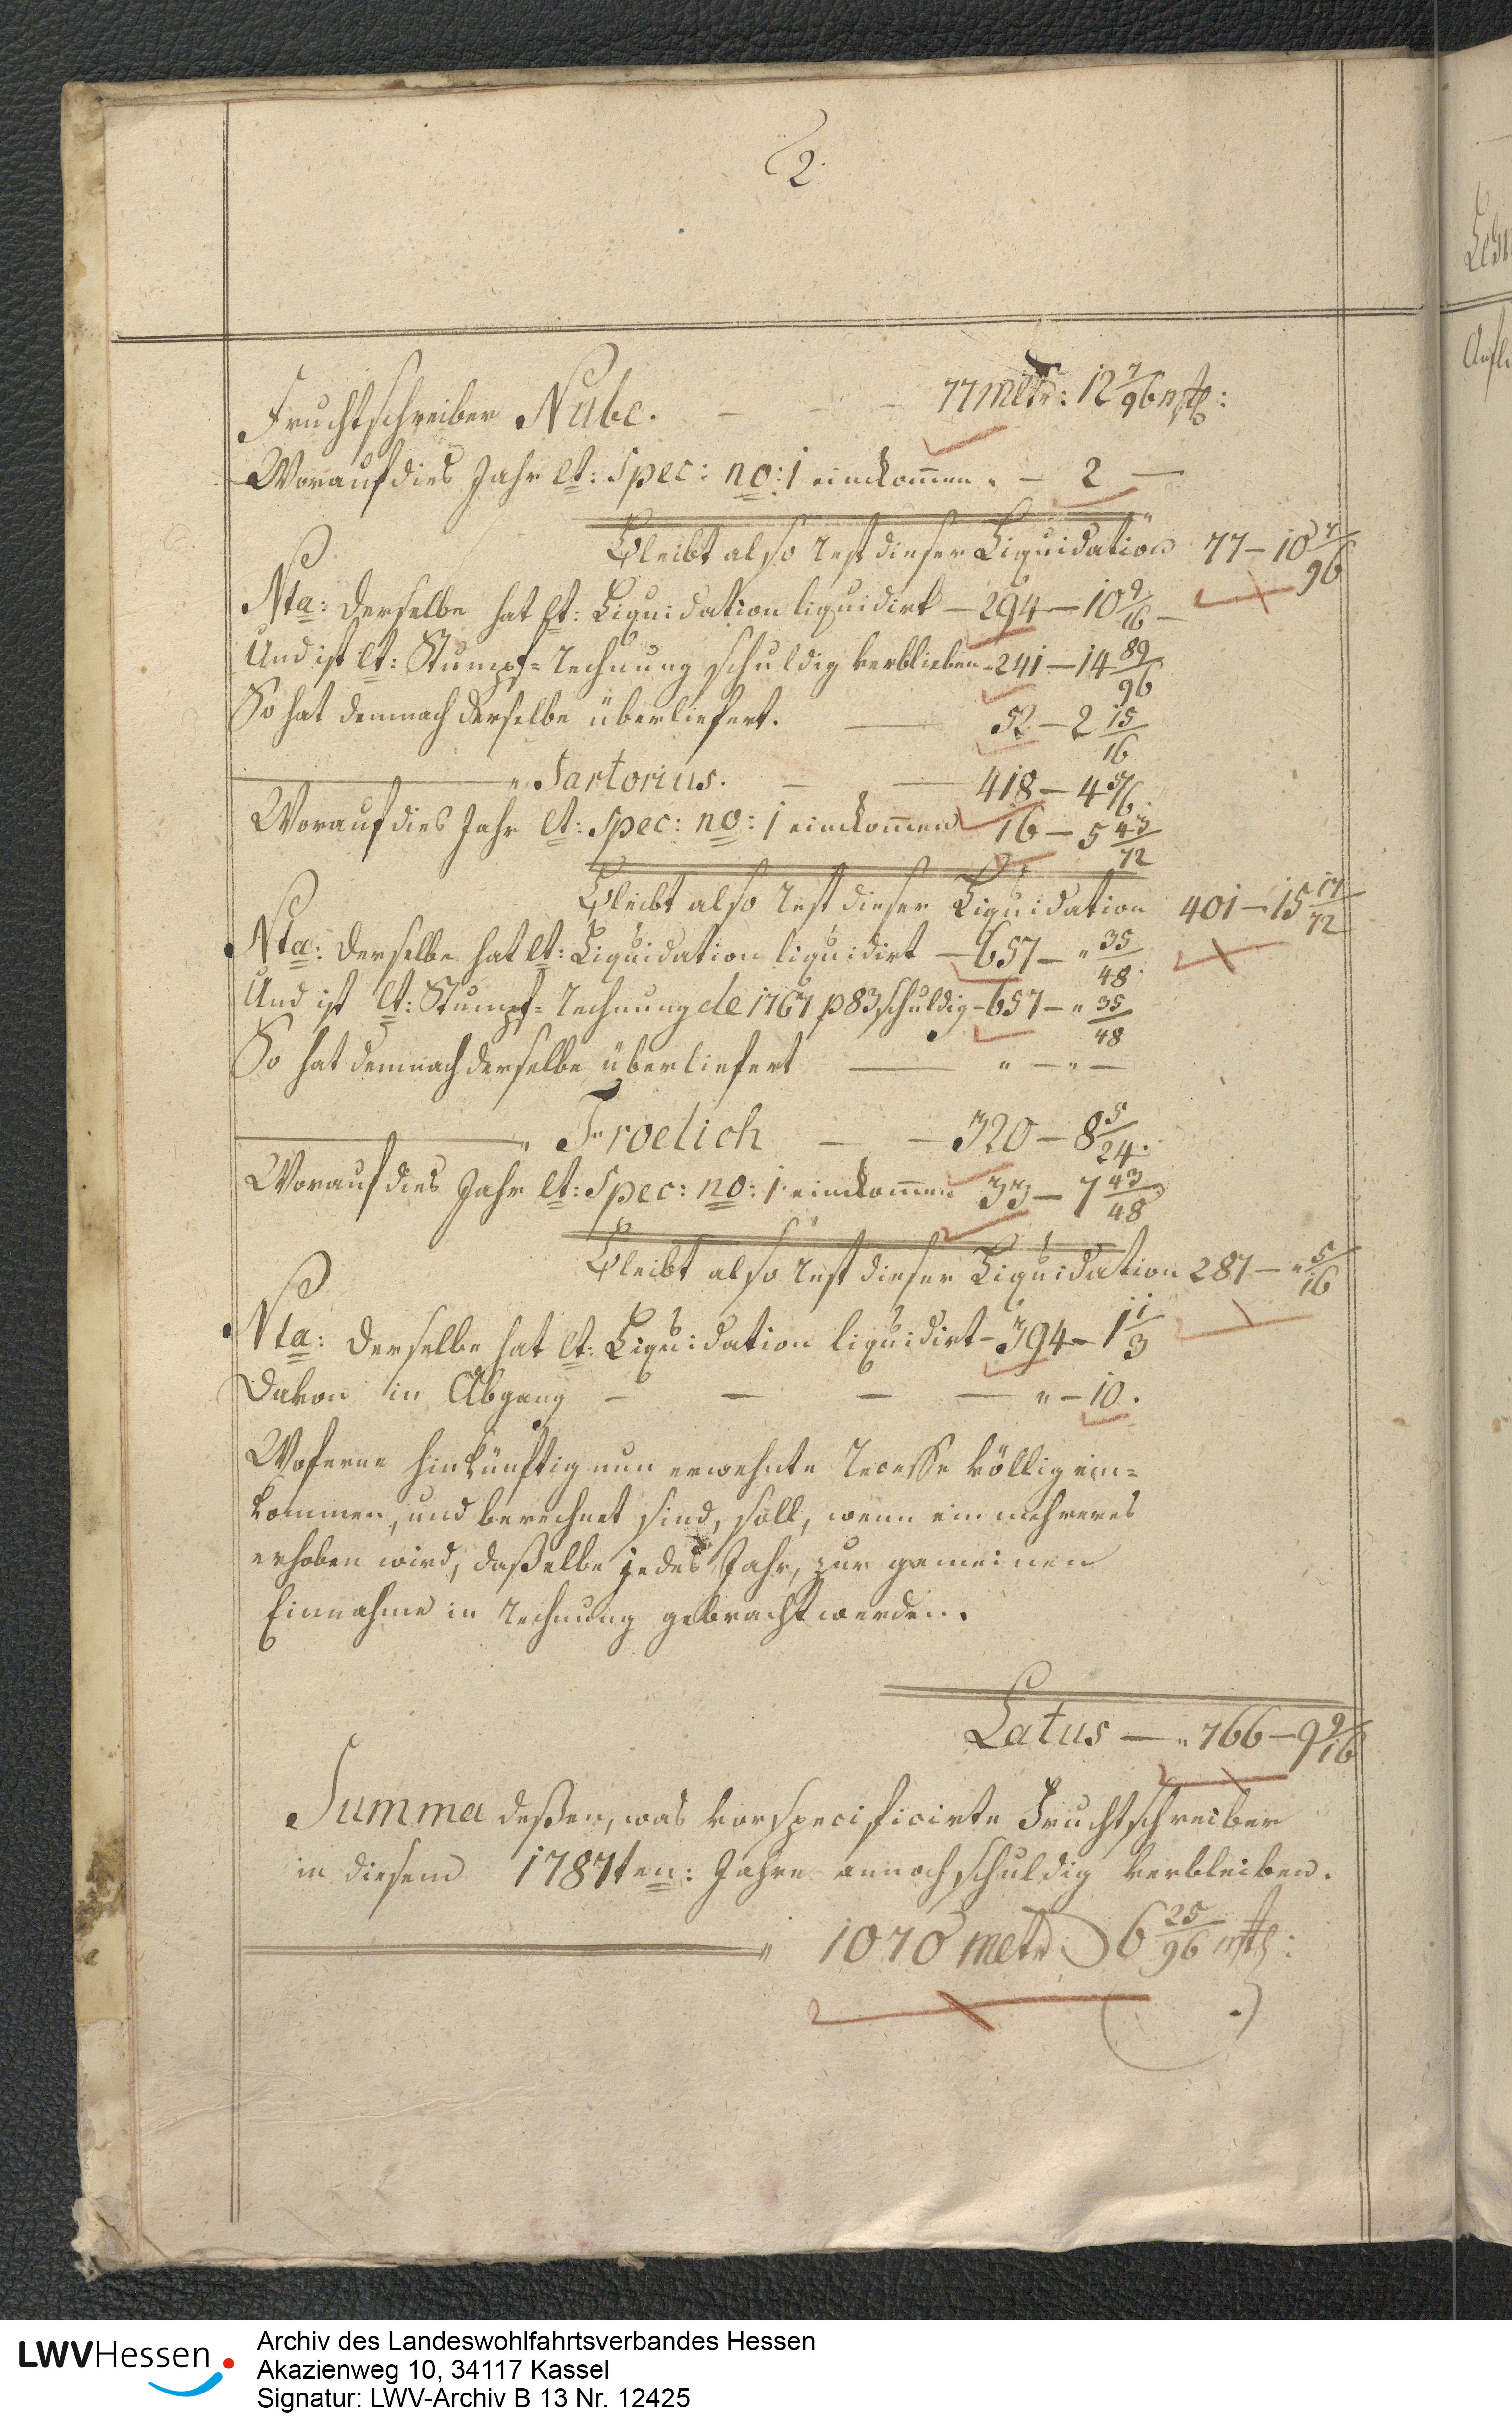 2.
Fruchtschreiber Nube. — — — 77 Mltr: 12 7/96 mtz:
Worauf dies Jahr lt: Spec: no: 1 einckom̄en „ — 2 —
Bleibt also Rest dieser Liquidation 77 — 10 7/96
Nta: derselbe hat lt: Liquidation liquidirt — 294 — 10 9/16 —
Und ist lt: Stumpf-Rechnung schuldig verblieben - 241 — 14 89/96
So hat demnach derselbe überliefert. — 52 — 2 15/16
— „ Sartorius. — — 418 — 4 5/6.
Worauf dies Jahr lt: Spec: no: 1 einckom̄en 16 — 5 43/72
Bleibt also Rest dieser Liquidation 401 — 15 17/72
Nta: derselbe hat lt: Liquidation liquidirt — 657 — „ 35/48.
Und ist lt: Stumpf-Rechnung de 1767 p 83 schuldig - 657 — „ 35/48
So hat demnach derselbe überliefert — „ — „ —
— „ Froelich — — 320 — 8 5/24.
Worauf dies Jahr lt: Spec: no: 1 einckom̄en 33 — 7 43/48
Bleibt also Rest dieser Liquidation 287 — „ 5/16
Nta: derselbe hat lt: Liquidation liquidirt - 394 — 1 1/3
Davon in Abgang — — — — „ — 10.
Woferne hinkünftig nun erwehnte Recesse völlig ein-
kommen, und berechnet sind, soll, wenn ein mehreres
erhoben wird, daßelbe jedes Jahr, zur gemeinen
Einnahme in Rechnung gebracht werden.
Latus — „ 766 — 9 9/16
Summa deßen, was vorspecificirte Fruchtschreiber
in diesem 1787ten: Jahre annoch schuldig verbleiben.
„ 1070 Mltr 6 25/96 mtz:
LWVHessen
Archiv des Landeswohlfahrtsverbandes Hessen
Akazienweg 10, 34117 Kassel
Signatur: LWV-Archiv B 13 Nr. 12425